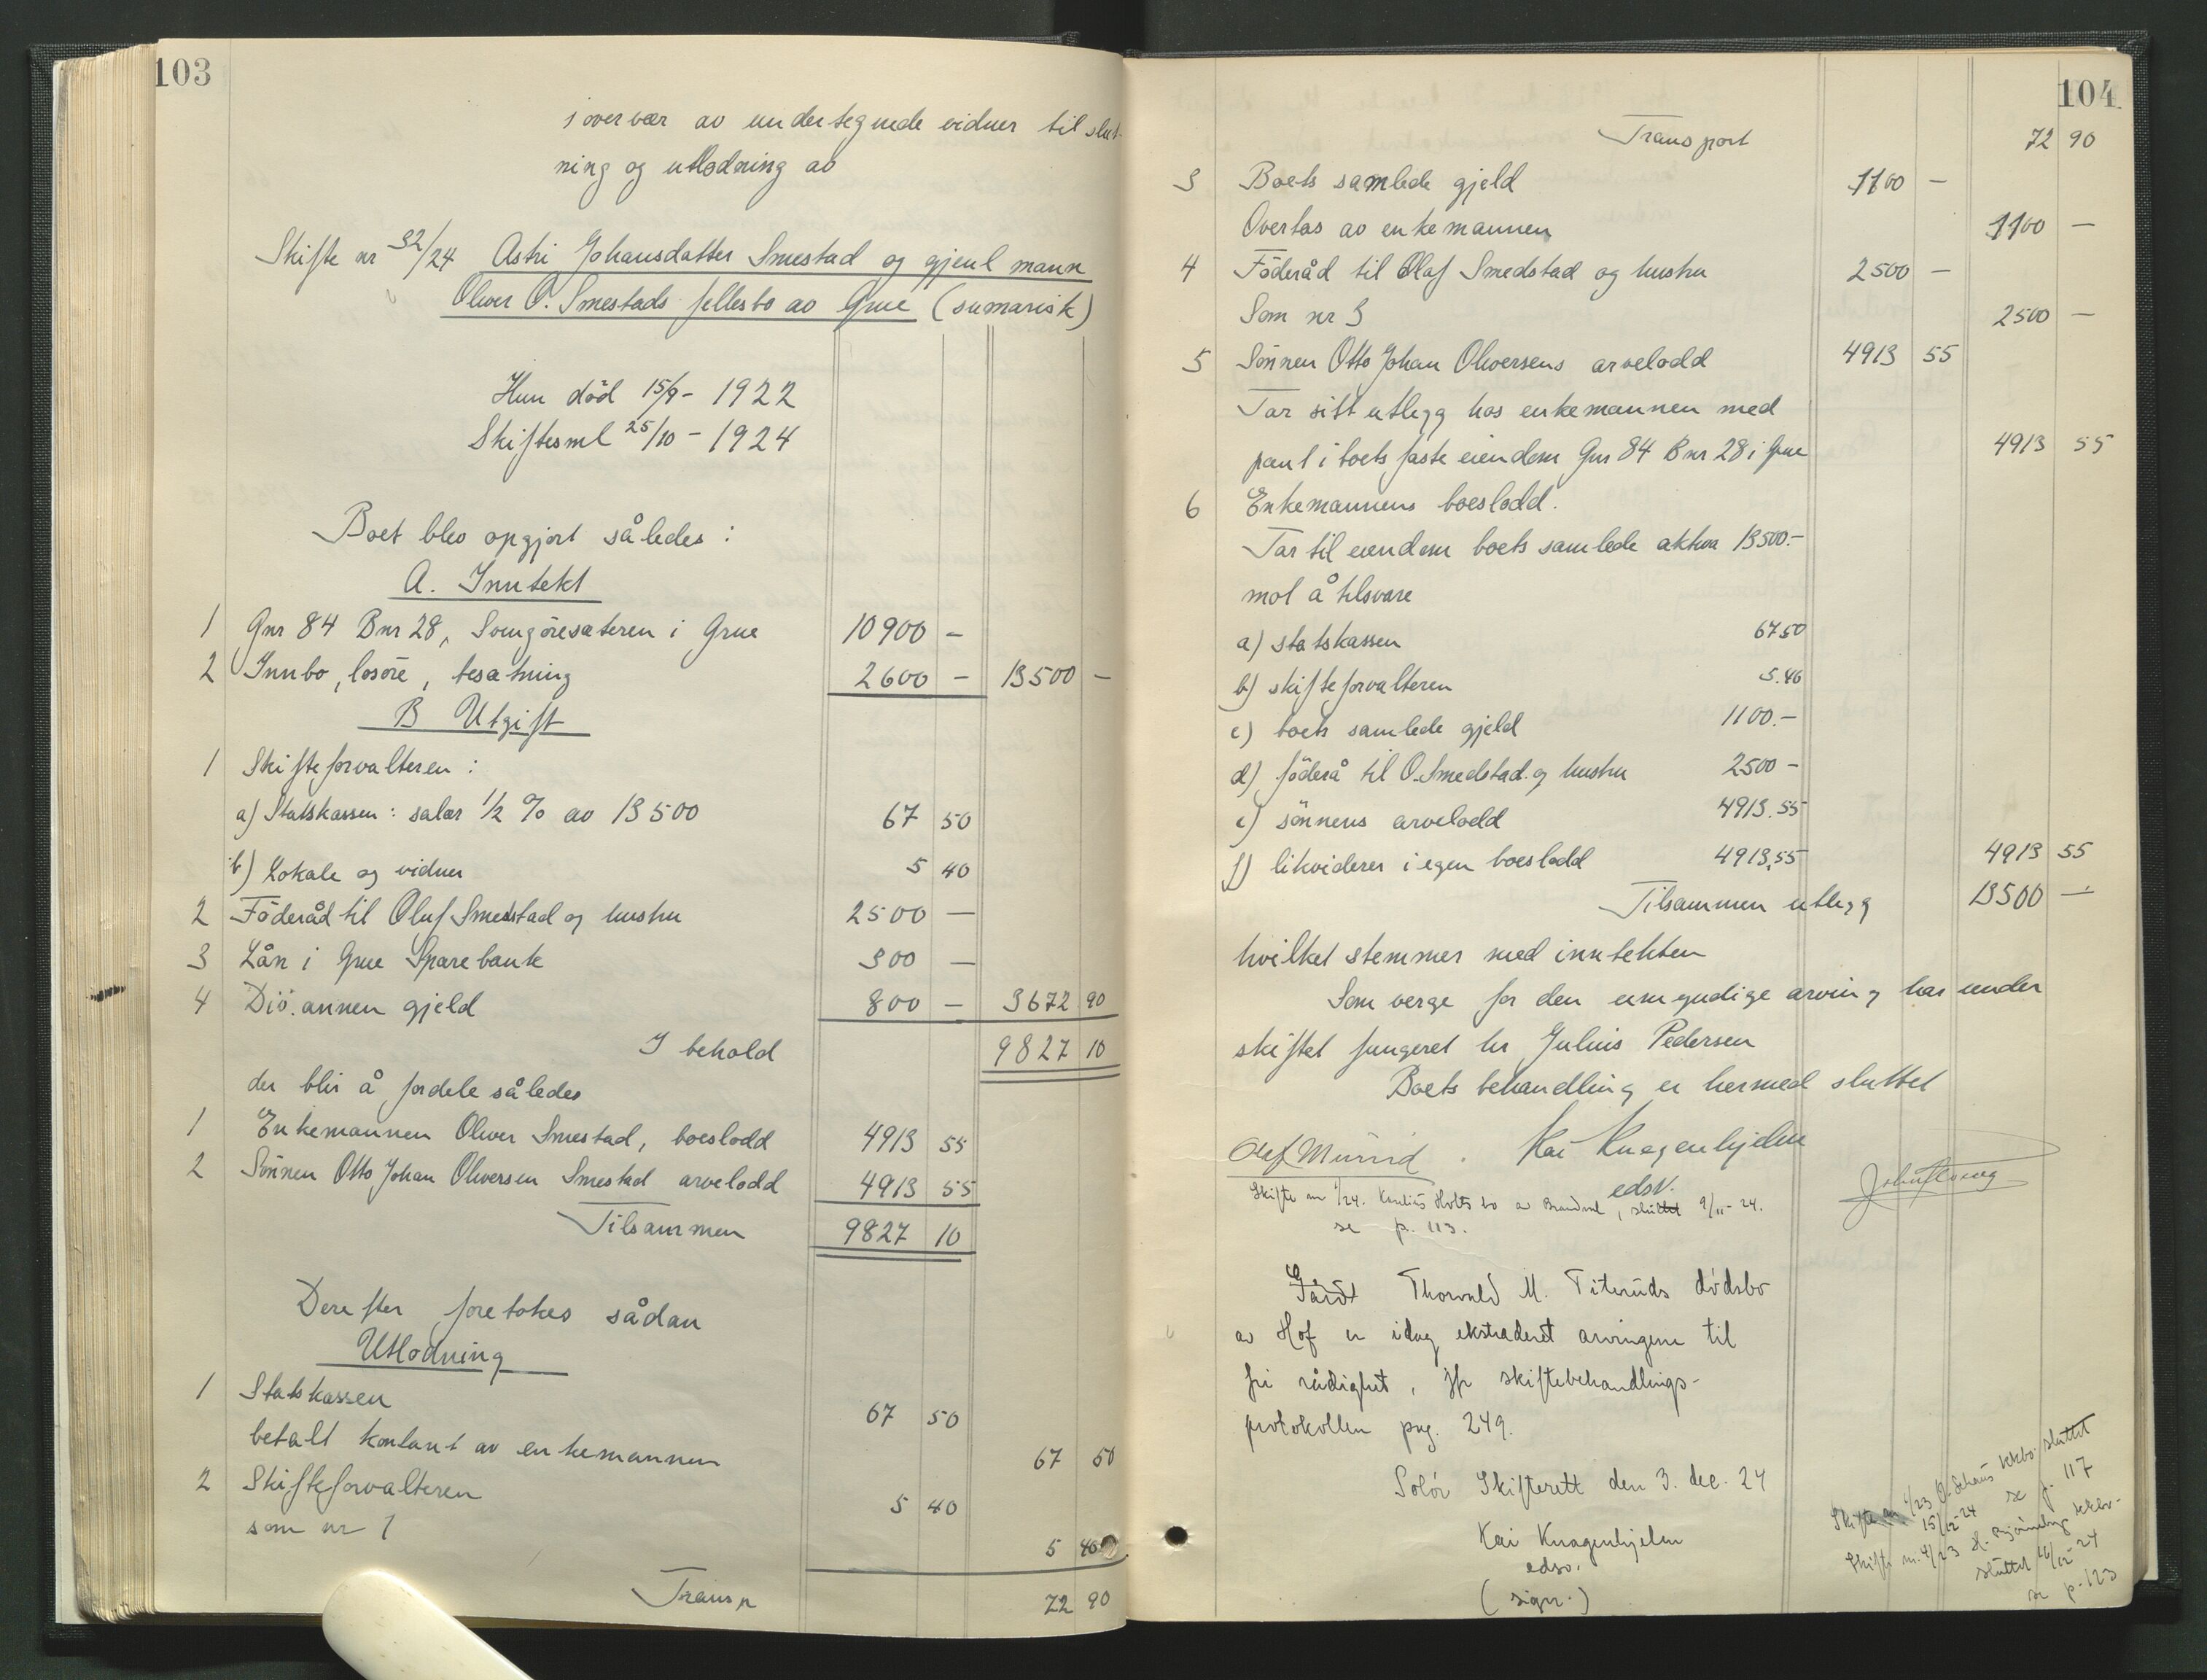 103
i overvær av undertegnede vidner til slut-
ning og utlodning av
Skifte nr 32/24 Astri Johansdatter Smestad og gjenl mann
Oliver O. Smestads fellesbo av Grue (sumarisk)
Hun död 15/9 - 1922
Skiftesml 25/10 - 1924
Boet blev opgjort således :
A. Inntekt
1 Gnr 84 Bnr 28, i Grue 10900 -
2 Innbo, losöre, besatning 2600 - 13500 -
B Utgift
1 Skifteforvalteren :
a) Statskassen : salær 1/2 % av 13500 67 50
b) Lokale og vidner 5 40
2 Föderåd til Oluf Smedstad og hustru 2500 -
3 Lån i Grue Sparebank 300 -
4 Div. annen gjeld 800 - 3672 90
I behold 9827 10
der blir å fordele således
1 Enkemannen Oliver Smestad, boeslodd 4913 55
2 Sönnen Otto Johan Oliversen Smestad arvelodd 4913 55
Tilsammen 9827 10
Derefter foretokes sådan
Utlodning
1 Statskassen 67 50
betalt kontant av enkemannen 67 50
2 Skifteforvalteren 5 40
som nr 1 5 40
Transp 72 90
104
Transport 72 90
3 Boets samlede gjeld 1100 -
Overtas av enkemannen 1100 -
4 Föderåd til Olaf Smedstad og hustru 2500 -
Som nr 3 2500 -
5 Sönnen Otto Johan Oliversens arvelodd 4913 55
Tar sitt utlegg hos enkemannen med
pant i boets faste eiendom Gnr 84 Bnr 28 i Grue 4913 55
6 Enkemannens boeslodd.
Tar til eiendom boets samlede aktiva 13500.-
mot å tilsvare
a) statskassen 67.50
b) skifteforvalteren 5.40
c) boets samlede gjeld 1100.-
d) föderå til O. Smedstad og hustru 2500 -
e) sönnens arvelodd 4913.55
f) likviderer i egen boeslodd 4913,55 4913 55
Tilsammen utlegg 13500 -
hvilket stemmer med inntekten
Som verge for den umyndige arving har under
skiftet fungeret hr Julius Pedersen
Boets behandling er hermed sluttet
Olaf Kai Knagenhjelm
edsv.
Skifte nr /24. Holts bo av Brandval, sluttet 9/11-24.
se p. 113.
Gårdb Thorvald M. Titeruds dödsbo
av Hof er idag ekstraderet arvingene til
fri rådighet, jfr skiftebehandlings-
protokollen pag. 249.
Solör Skifterett den 3. dec. 24
Kai Knagenhjelm
edsv.
(sign.)
Skifte nr /23 sluttet
15/12 24 se p. 117
Skifte nr. 4/23
sluttet 16/12 24
se p. 123